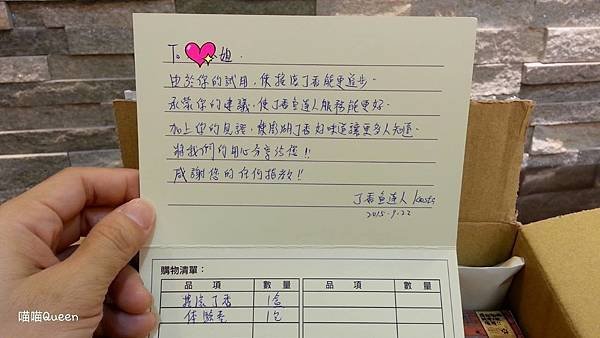 To 姐.
由於你的試用,使掩流丁香能更進步.
承蒙你的建議,使丁香魚達人服務能更好.
加上您的見證,使澎湖丁香好味道讓更多人知道.
將我們的用心分享給您!!
感謝您的任何指教!!
丁香魚達人
2015.9.22
購物清單:
品 項 數 量 品 項 數 量
丁香 1盒
體驗 1包
喵喵Queen